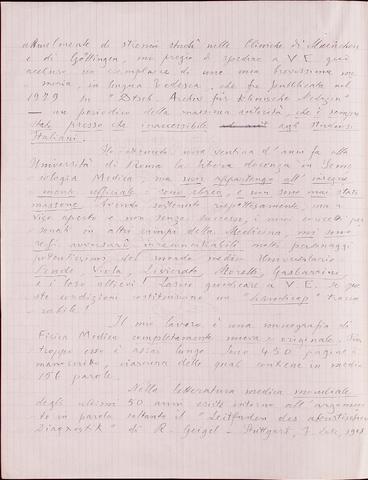 attualmente di stremia studii nelle Cliniche di München
e di Göttingen, mi pregio di spedire a V. E. qui
accluso, un esemplare di una mia brevissima me
moria, in lingua tedesca, che fu pubblicata nel
1929 in "Dtsch. Archiv für klinische Medizin"
— un periodico della massima autorità, che è sempre
stato presso che inaccessibile agli studiosi
Italiani.
Ho ottenuto una ventina d'anni fa alla
Università di Roma la libera docenza in Seme
iologia Medica, ma non appartengo all'insegna
mento ufficiale: sono ebreo e non sono mai stato
massone. Avendo sostenuto rispettosamente, ma a
viso aperto e non senza successo, i miei concetti per
sonali in altri campi della Medicina, mi sono
reso avversari irreconciliabili molti personaggi
potentissimi del mondo medico Universitario
Viola, Livierato, Morelli, Gasbarrini,
e i loro allievi. Lascio giudicare a V. E. se que
ste condizioni costituiscono un "handicap" trascu
rabile!
Il mio lavoro è una monografia di
Fisica Medica completamente nuova e originale. Pur
troppo esso è assai lungo. Sono 450 pagine
manoscritte, ciascuna delle quali contiene in media
156 parole.
Nella letteratura medica mondiale
degli ultimi 50 anni esiste intorno all'argomen
to in parola soltanto il "Leitfaden der akustischen
Diagnostik" di R. Geigel - Stuttgart, F. Enke, 1908